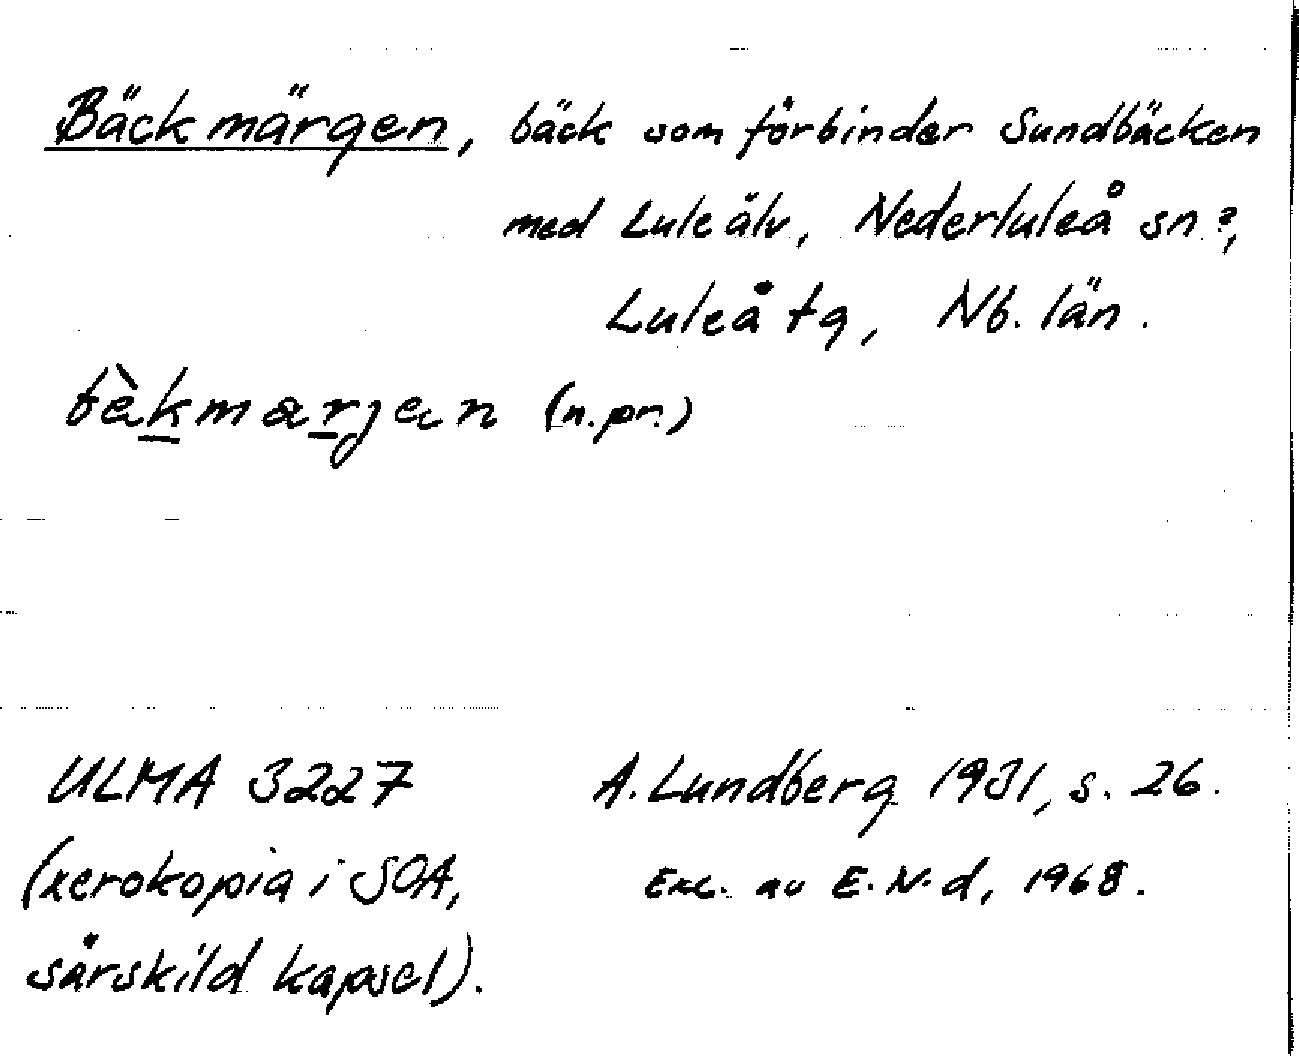 Bäckmärgen, bäck som förbinder Sundbäcken
med Lule älv, Nederluleå sn?,
Luleå tg, Nb. län.
bèkmarjen (n.pr.)
ULMA 3227 A. Lundberg 1931, s. 26.
(xerokopia i SOA, Exc. av E. N-d, 1968.
särskild kapsel).